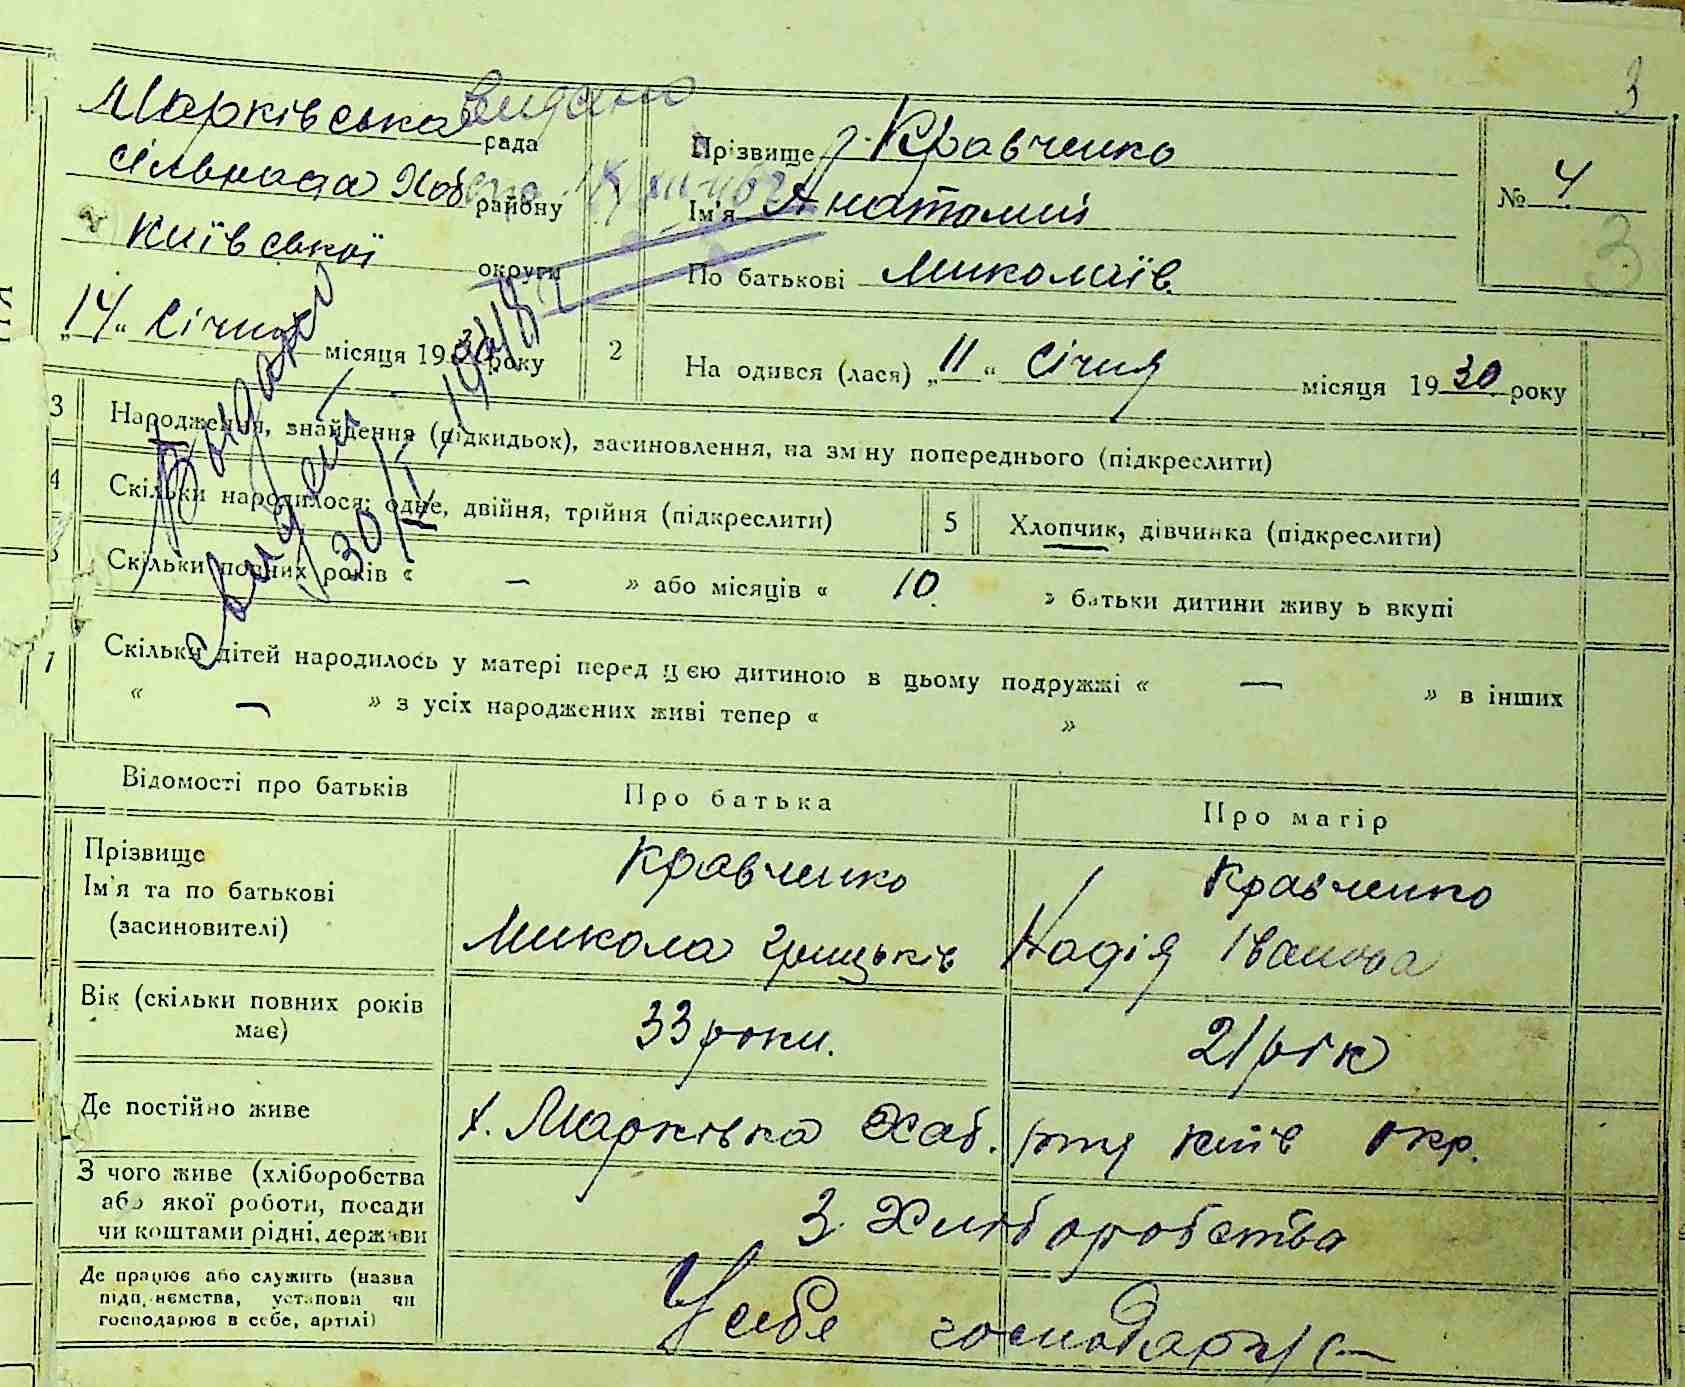 3
Марківська рада видано
сільрада Хаб району
Київської округи
„14“ Січня місяця 1930 року
Прізвище Кравченко
Ім'я Анатолий
По батькові Миколаїв.
№ 4
3
2 На одився (лася) „11“ Січня місяця 1930 року
3 Народження, знайдення (підкидьок), засиновлення, на зм ну попереднього (підкреслити)
4 Скільки народилося: одне, двійня, трійня (підкреслити) 5 Хлопчик, дівчинка (підкреслити)
Скільки повних років « — » або місяців « 10 » батьки дитини живу ь вкупі
Скільки дітей народилось у матері перед цією дитиною в цьому подружжі « — » в інших
« — » з усіх народжених живі тепер « »
Выдано
30/I 1948
Відомості про батьків Про батька Про матір
Прізвище Кравченко Кравченко
Ім'я та по батькові
(засиновителі) Микола Грицьків Надія Іванова
Вік (скільки повних років
має) 33 роки. 21 рік
Де постійно живе х. Марківка Хаб. р-ну Київ окр.
З чого живе (хліборобства
або якої роботи, посади
чи коштами рідні, держави З Хліборобства
Де працює або служить (назва
підп, иємства, установи чи
господарює в себе, артілі) У себе господарує